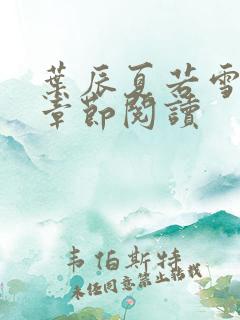 葉辰夏若雪
章節閱讀
韦伯斯特
未经同意禁止转载